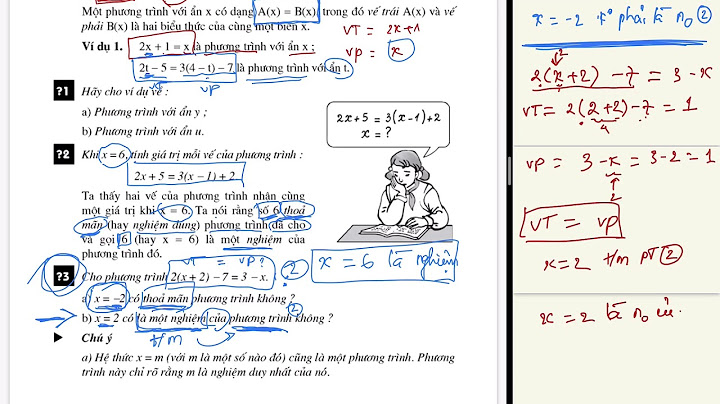 Một phương trình với ẩn x có dạng A(x) = B(x), trong đó vế trái A(x) và vế
phải B(x) là hai biểu thức của cùng một biến x.
VT = 2x+1
VP = x
Ví dụ 1. 2x + 1 = x là phương trình với ẩn x ;
2t – 5 = 3(4 – t) – 7 là phương trình với ẩn t.
VP
?1 Hãy cho ví dụ về :
a) Phương trình với ẩn y ;
b) Phương trình với ẩn u.
?2 Khi x = 6, tính giá trị mỗi vế của phương trình :
2x + 5 = 3(x – 1) + 2.
2x + 5 = 3(x – 1) + 2
x = ?
Ta thấy hai vế của phương trình nhận cùng
một giá trị khi x = 6. Ta nói rằng số 6 thoả
mãn (hay nghiệm đúng) phương trình đã cho
và gọi 6 (hay x = 6) là một nghiệm của
phương trình đó.
x = 6 là nghiệm
VT = VP?
?3 Cho phương trình 2(x + 2) – 7 = 3 – x. 2
a) x = –2 có thoả mãn phương trình không ?
b) x = 2 có là một nghiệm của phương trình không ?
2
t/m
Chú ý
a) Hệ thức x = m (với m là một số nào đó) cũng là một phương trình. Phương
trình này chỉ rõ rằng m là nghiệm duy nhất của nó.
x = -2 phải là no 2
2
2(x+2) - 7 = 3 - x
VT = 2(2+2) - 7 = 1
4
VP = 3 - x = 3 - 2 = 1
2
VT = VP
x = 2 t/m PT 2
x = 2 là no